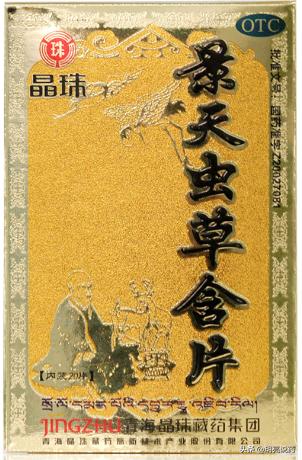 OTC
珠
晶珠
景天虫草含片
批准文号:国药准字
【内装20片】
JINGZHU青海晶珠藏药集团
青海晶珠藏药高新技术产业股份有限公司